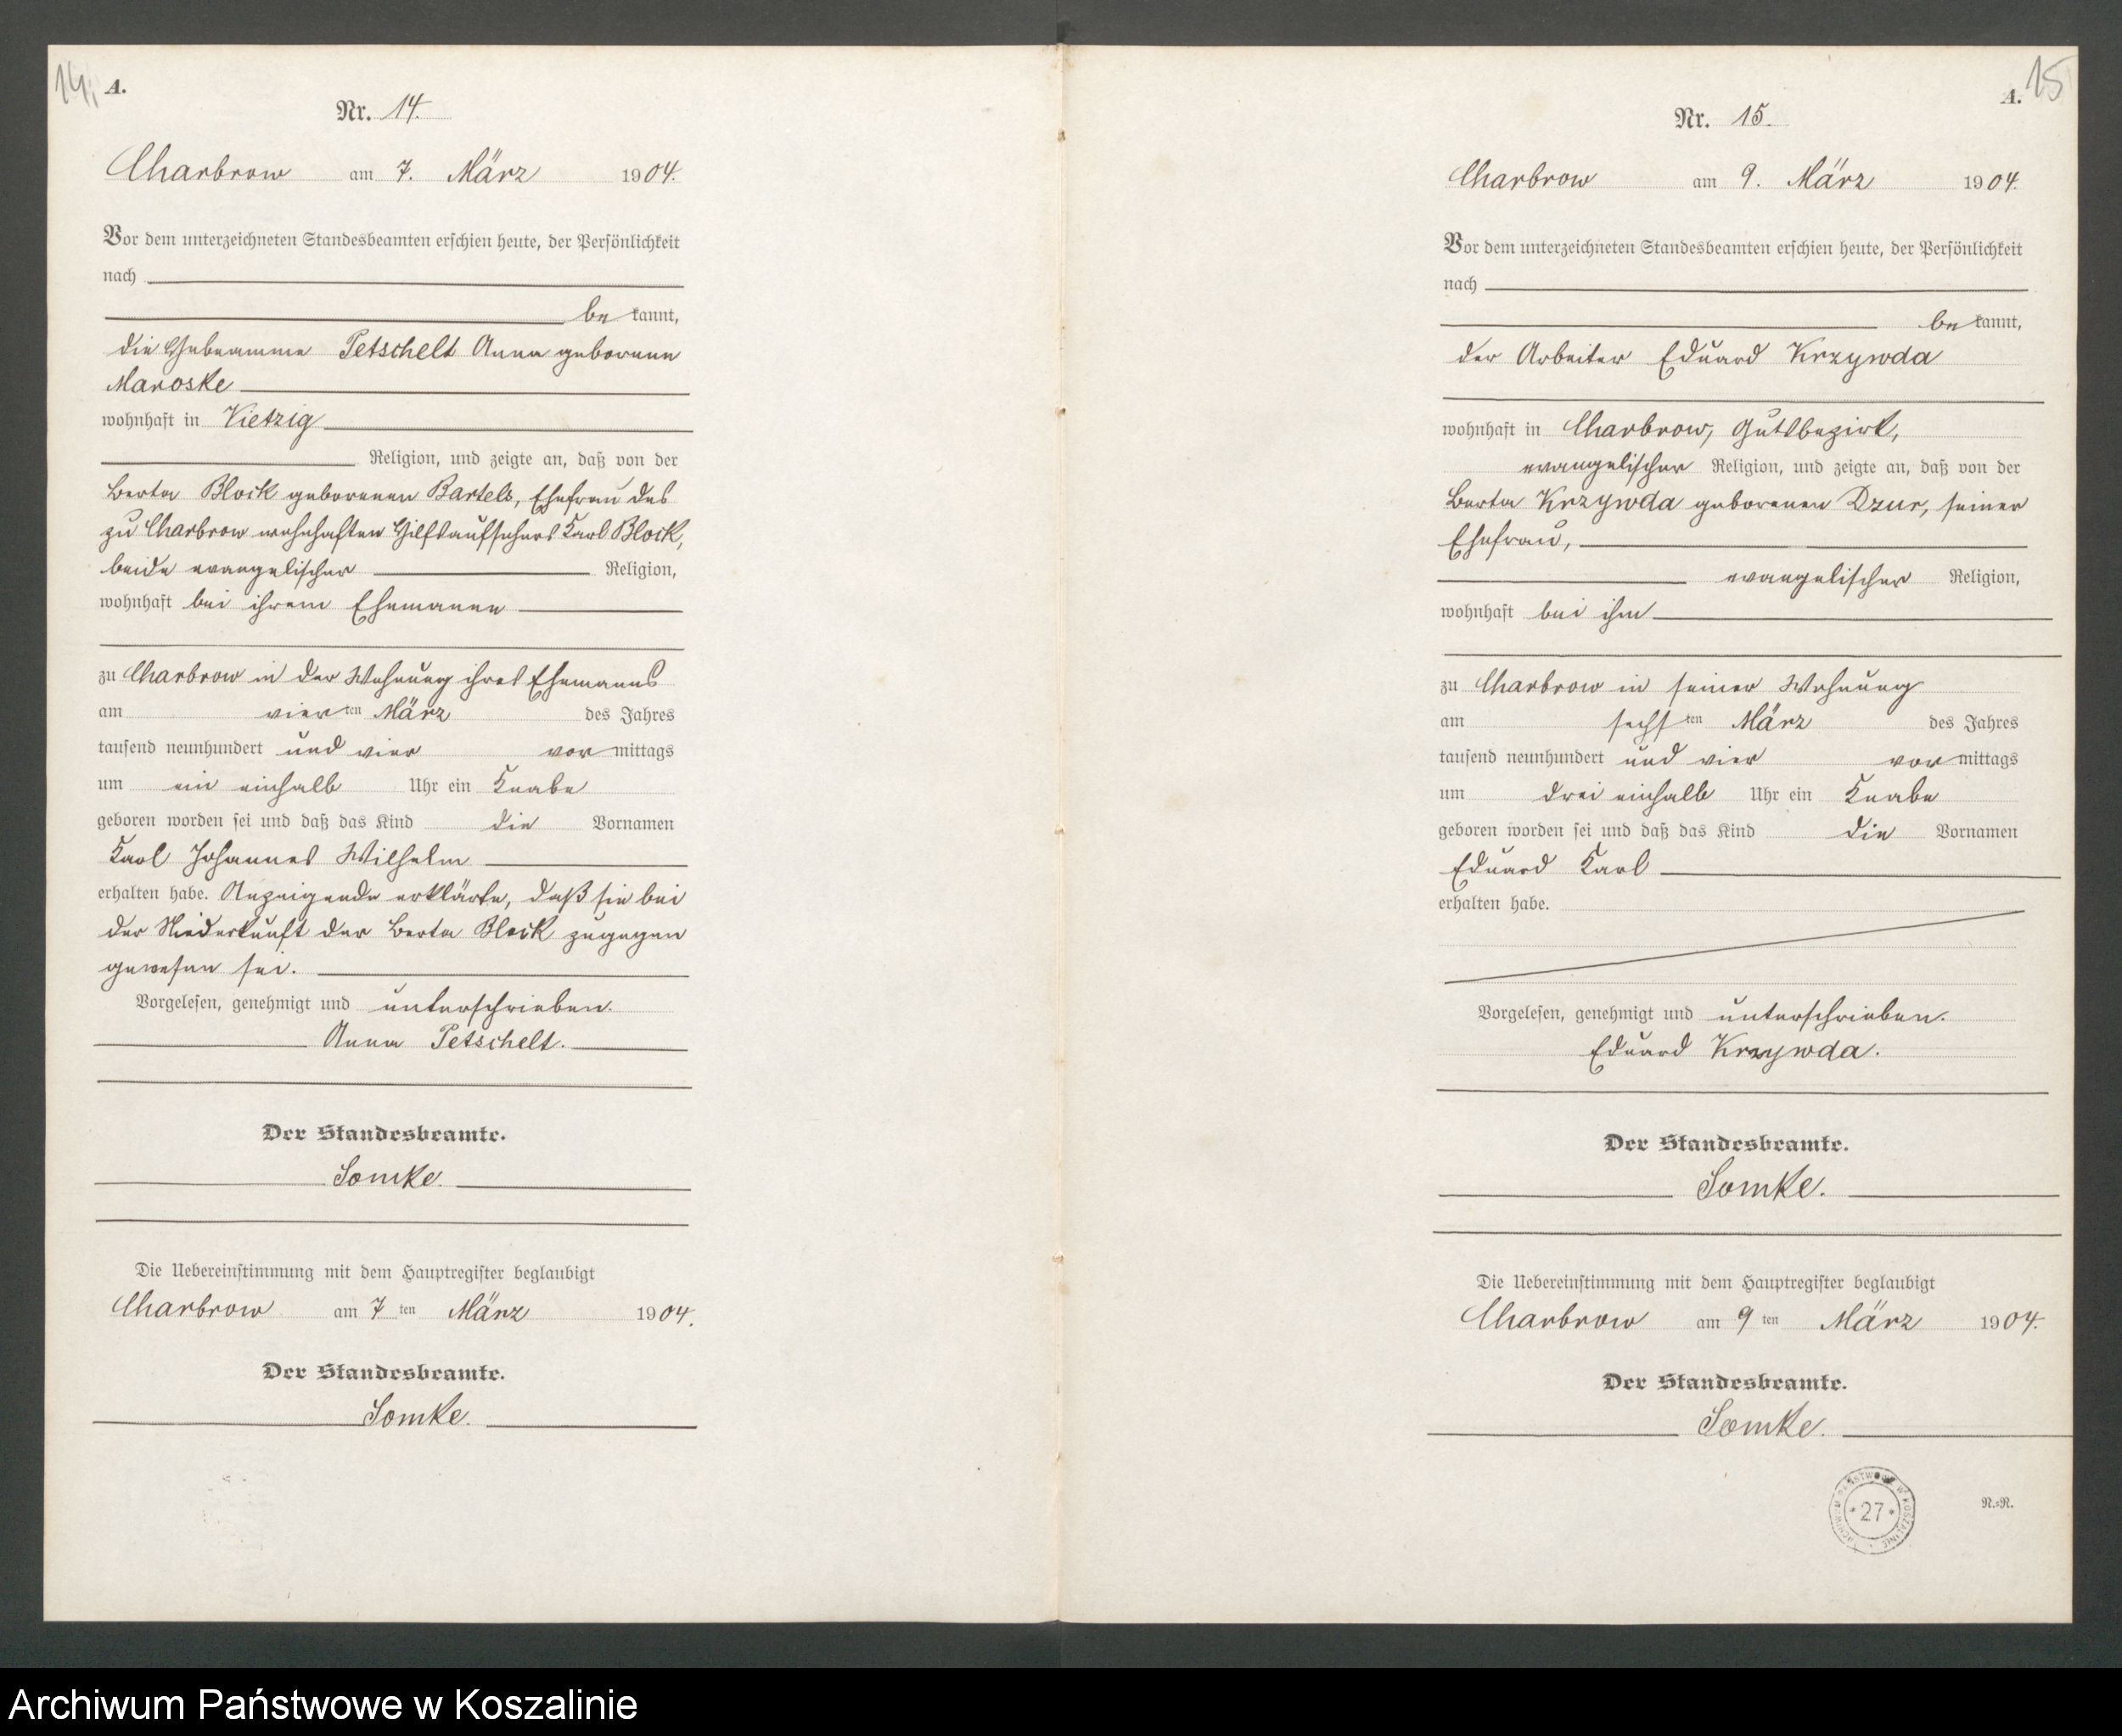 14.
A.
Nr. 14.
Charbrow am 7. März 1904.
Vor dem unterzeichneten Standesbeamten erschien heute, der Persönlichkeit
nach
be kannt,
die Hebeamme Petschelt Anna geborene
Maroske
wohnhaft in Vietzig
Religion, und zeigte an, daß von der
Berta Block geborenen Bartels, Ehefrau des
zu Charbrow wohnhaften Hilfsaufsehers Karl Block,
beide evangelischer Religion,
wohnhaft bei ihrem Ehemanne
zu Charbrow in der Wohnung ihres Ehemanns
am vier ten März des Jahres
tausend neunhundert und vier vor mittags
um ein einhalb Uhr ein Knabe
geboren worden sei und daß das Kind die Vornamen
Karl Johannes Wilhelm
erhalten habe. Anzeigende erklärte, daß sie bei
der Niederkunft der Berta Block zugegen
gewesen sei.
Vorgelesen, genehmigt und unterschrieben.
Anna Petschelt.
Der Standesbeamte.
Somke.
Die Uebereinstimmung mit dem Hauptregister beglaubigt
Charbrow am 7 ten März 1904.
Der Standesbeamte.
Somke.
15
A.
Nr. 15.
Charbrow am 9. März 1904.
Vor dem unterzeichneten Standesbeamten erschien heute, der Persönlichkeit
nach
be kannt,
der Arbeiter Eduard Krzywda
wohnhaft in Charbrow, Gutsbezirk,
evangelischer Religion, und zeigte an, daß von der
Berta Krzywda geborenen Dzur, seiner
Ehefrau,
evangelischer Religion,
wohnhaft bei ihm
zu Charbrow in seiner Wohnung
am sechs ten März des Jahres
tausend neunhundert und vier vor mittags
um drei einhalb Uhr ein Knabe
geboren worden sei und daß das Kind die Vornamen
Eduard Karl
erhalten habe.
Vorgelesen, genehmigt und unterschrieben.
Eduard Krzywda.
Der Standesbeamte.
Somke.
Die Uebereinstimmung mit dem Hauptregister beglaubigt
Charbrow am 9 ten März 1904.
Der Standesbeamte.
Somke.
ARCHIWUM PAŃSTWOWE W KOSZALINIE
* 27 *
N.-R.
Archiwum Państwowe w Koszalinie